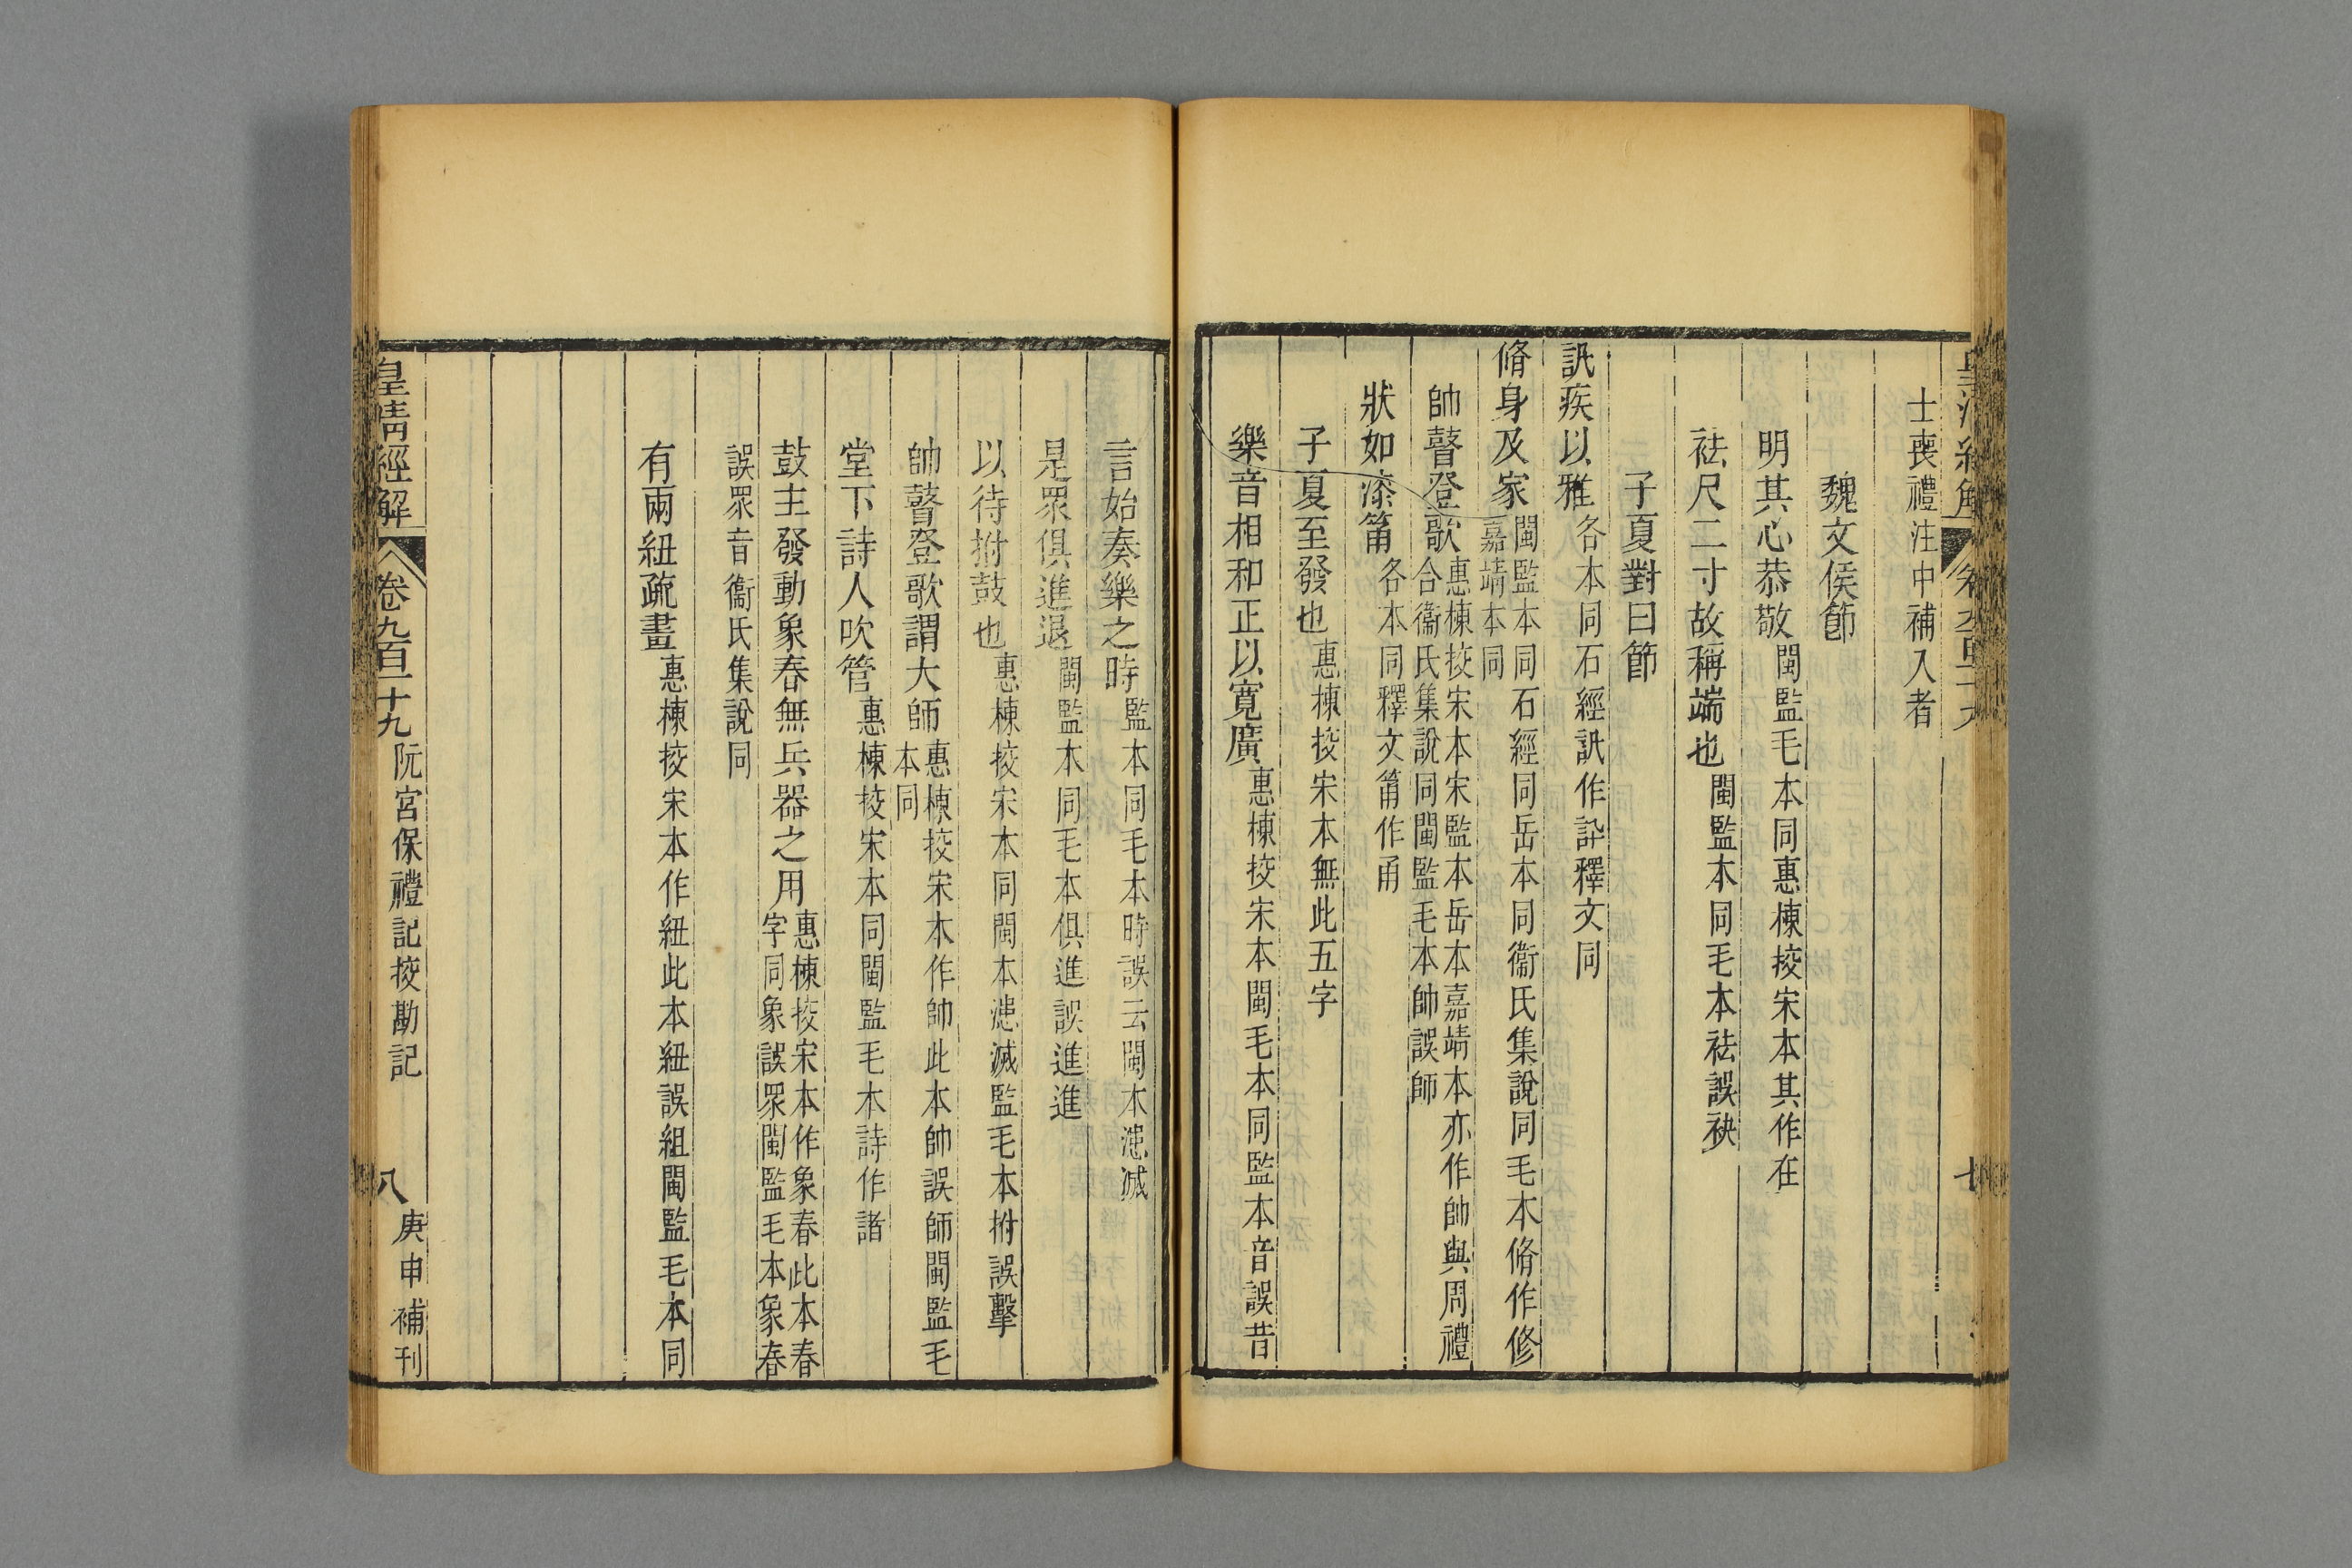 士喪禮注中補入者
魏文侯節
明其心恭敬閩監毛本同惠棟挍宋本其作在
袪尺二寸故稱端也閩監本同毛本袪誤袂
子夏對曰節
訊疾以雅各本同石經訊作訙釋文同
脩身及家閩監本同石經同岳本同衞氏集說同毛本脩作修
嘉靖本同
帥瞽登歌惠棟挍宋本宋監本岳本嘉靖本亦作帥與周禮
合衞氏集說同閩監毛本帥誤師
狀如漆筩各本同釋文筩作甬
子夏至發也惠棟挍宋本無此五字
樂音相和正以寬廣惠棟挍宋本閩毛本同監本音誤昔
言始奏樂之時監本同毛本時誤云閩本漶滅
是眾俱進退閩監本同毛本俱進誤進進
以待拊鼓也惠棟挍宋本同閩本漶滅監毛本拊誤擊
帥瞽登歌謂大師惠棟挍宋本作帥此本帥誤師閩監毛
本同
堂下詩人吹管惠棟挍宋本同閩監毛本詩作諸
鼓主發動象春無兵器之用惠棟挍宋本作象春此本春
字同象誤眾閩監毛本象春
誤眾音衞氏集說同
有兩紐疏畫惠棟挍宋本作紐此本紐誤組閩監毛本同
皇清經解 卷九百二十九 阮宮保禮記挍勘記 八 庚申補刊